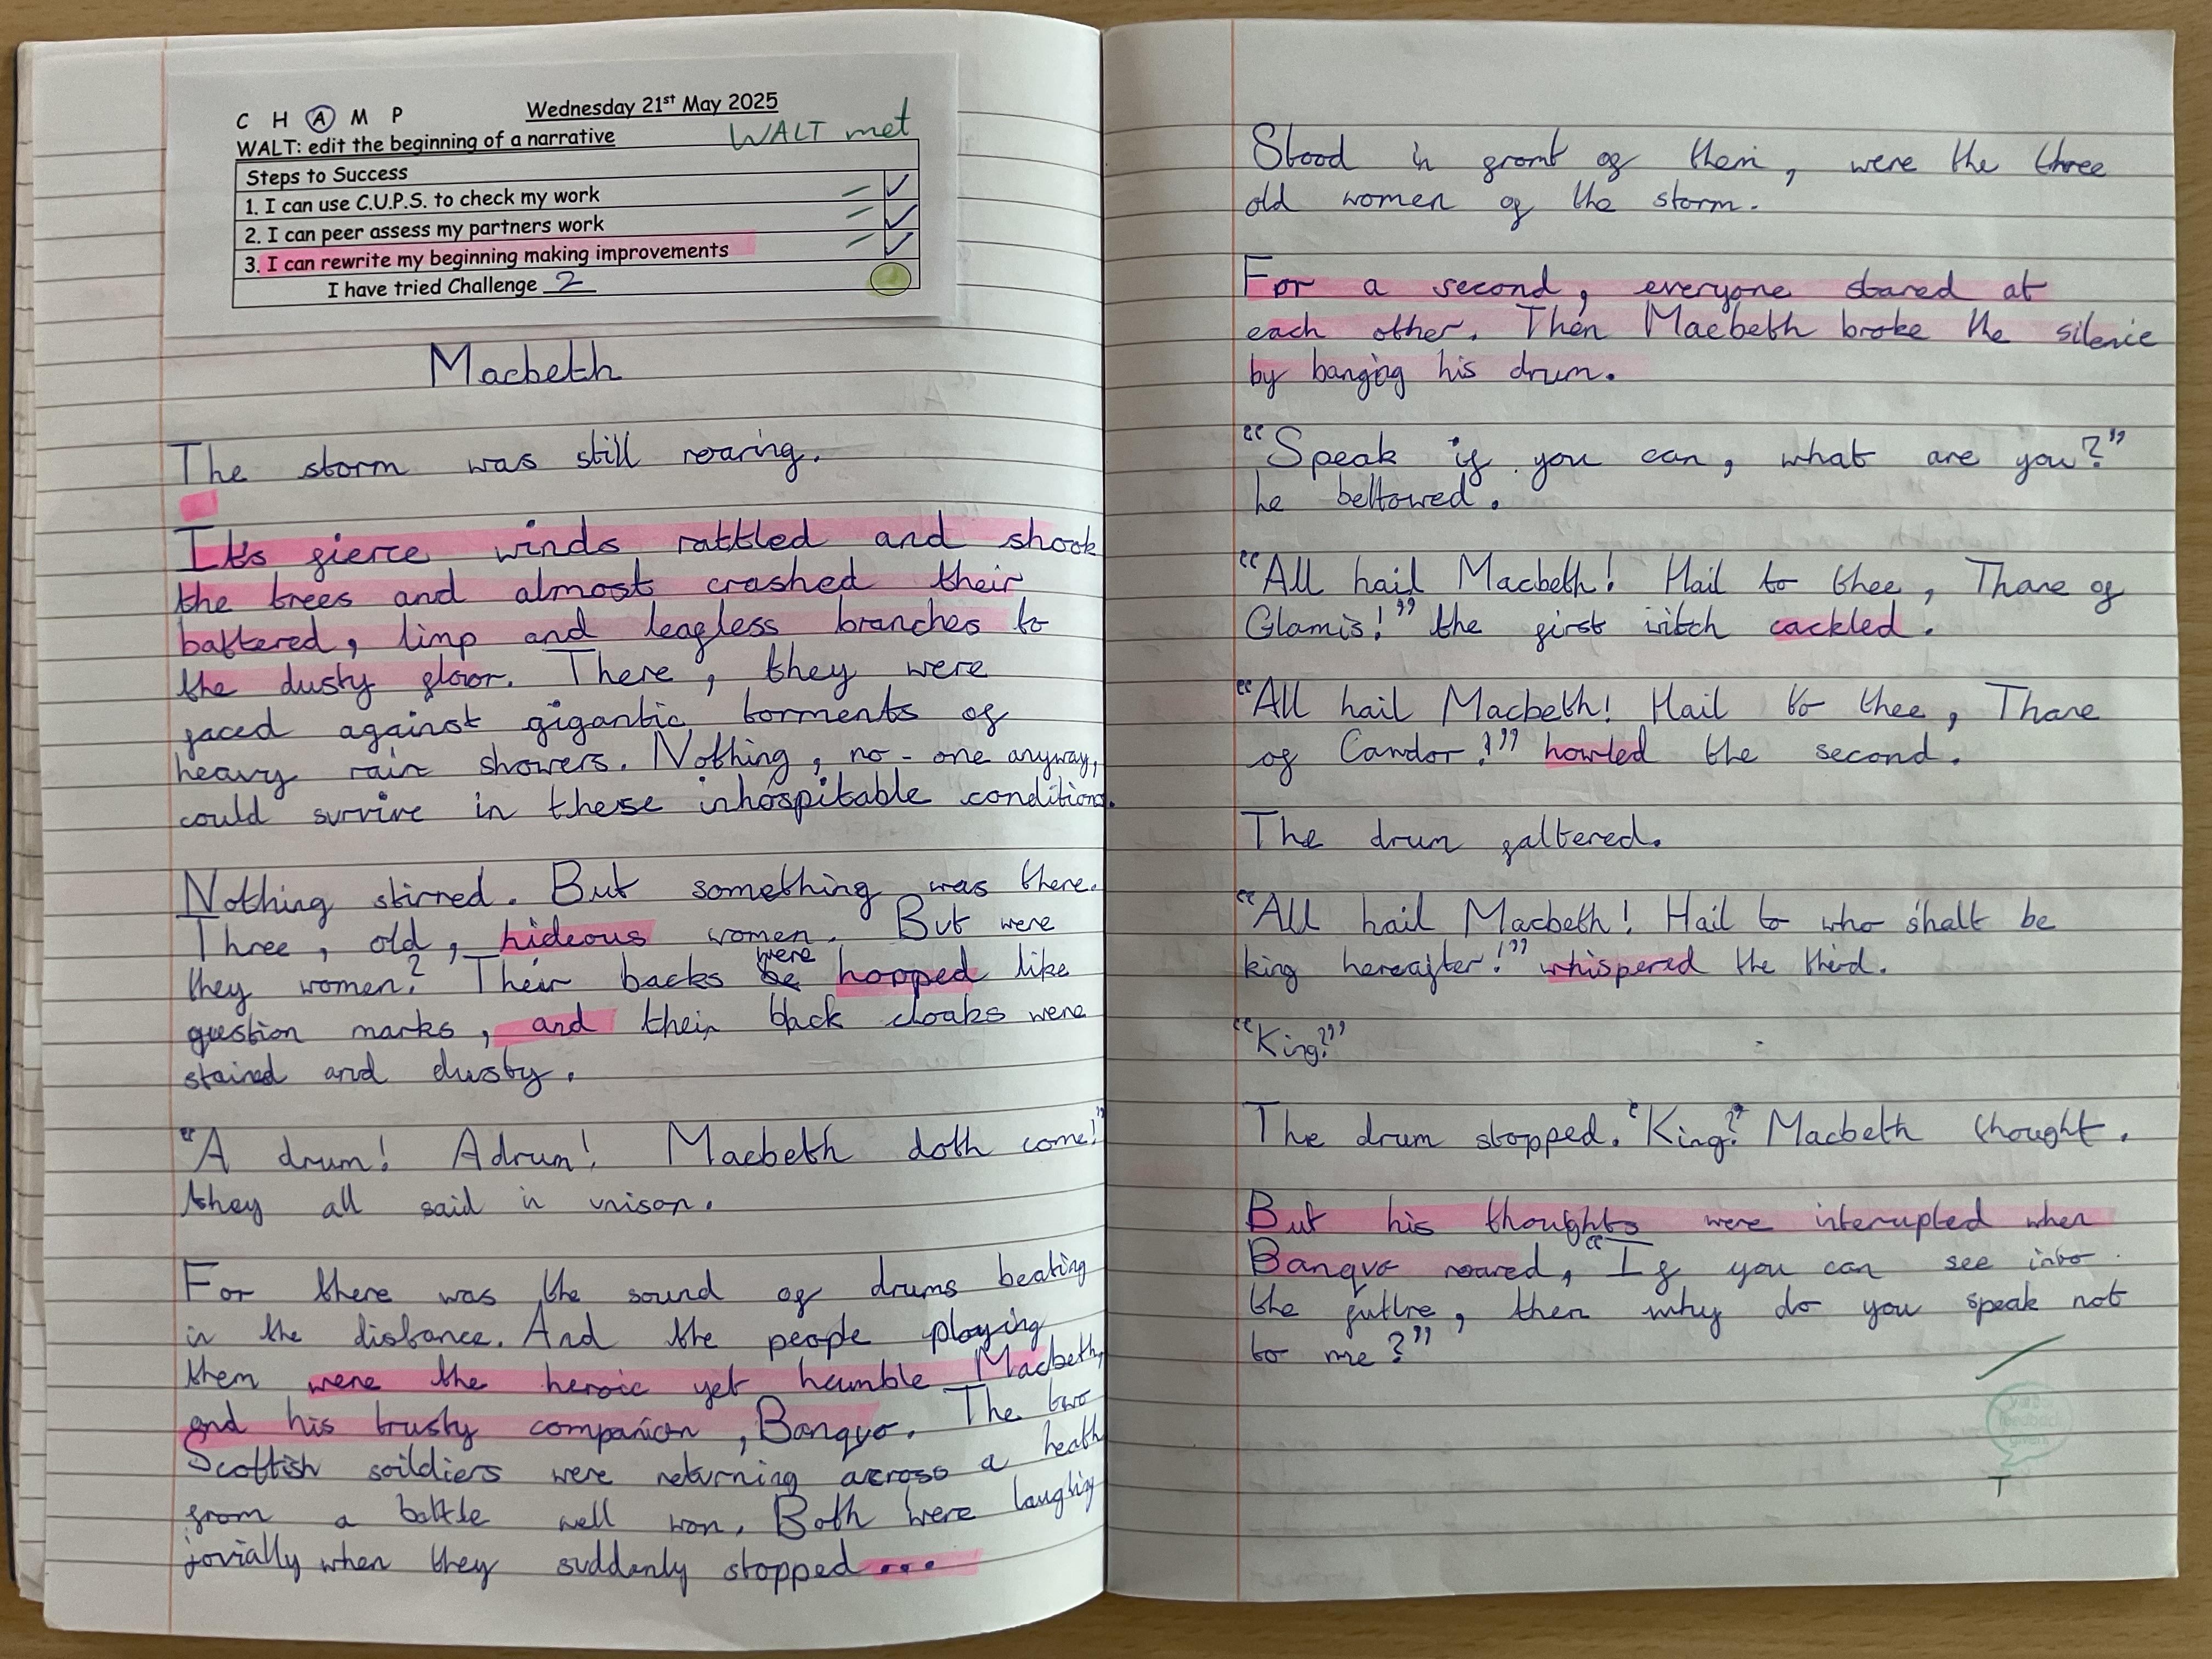 C H A M P
Wednesday 21st May 2025
WALT: edit the beginning of a narrative
WALT met
Steps to Success
1. I can use C.U.P.S. to check my work
2. I can peer assess my partners work
3. I can rewrite my beginning making improvements
I have tried Challenge 2
Macbeth
The storm was still roaring.
It's fierce winds rattled and shook
the trees and almost crashed their
battered, limp and leafless branches to
the dusty floor. There, they were
faced against gigantic torments of
heavy rain showers. Nothing, no-one anyway,
could survive in these inhospitable conditions.
Nothing stirred. But something was there.
Three, old, hideous women. But were
they women? Their backs were hopped like
question marks, and their black cloaks were
stained and dusty.
"A drum! A drum! Macbeth doth come!"
they all said in unison.
For there was the sound of drums beating
in the distance. And the people playing
them were the heroic yet humble Macbeth,
and his trusty companion, Banquo. The two
Scottish soildiers were returning across a heath
from a battle well won. Both were laughing
jovially when they suddenly stopped...
Stood in front of them, were the three
old women of the storm.
For a second, everyone stared at
each other. Then Macbeth broke the silence
by banging his drum.
"Speak if you can, what are you?"
he bellowed.
"All hail Macbeth! Hail to thee, Thane of
Glamis!" the first witch cackled.
"All hail Macbeth! Hail to thee, Thane
of Cawdor!" howled the second.
The drum faltered.
"All hail Macbeth! Hail to who shalt be
king hereafter!" whispered the third.
"King?"
The drum stopped. 'King?' Macbeth thought.
But his thoughts were interupted when
Banquo roared, "If you can see into
the futre, then why do you speak not
to me?"
feedback
given
T